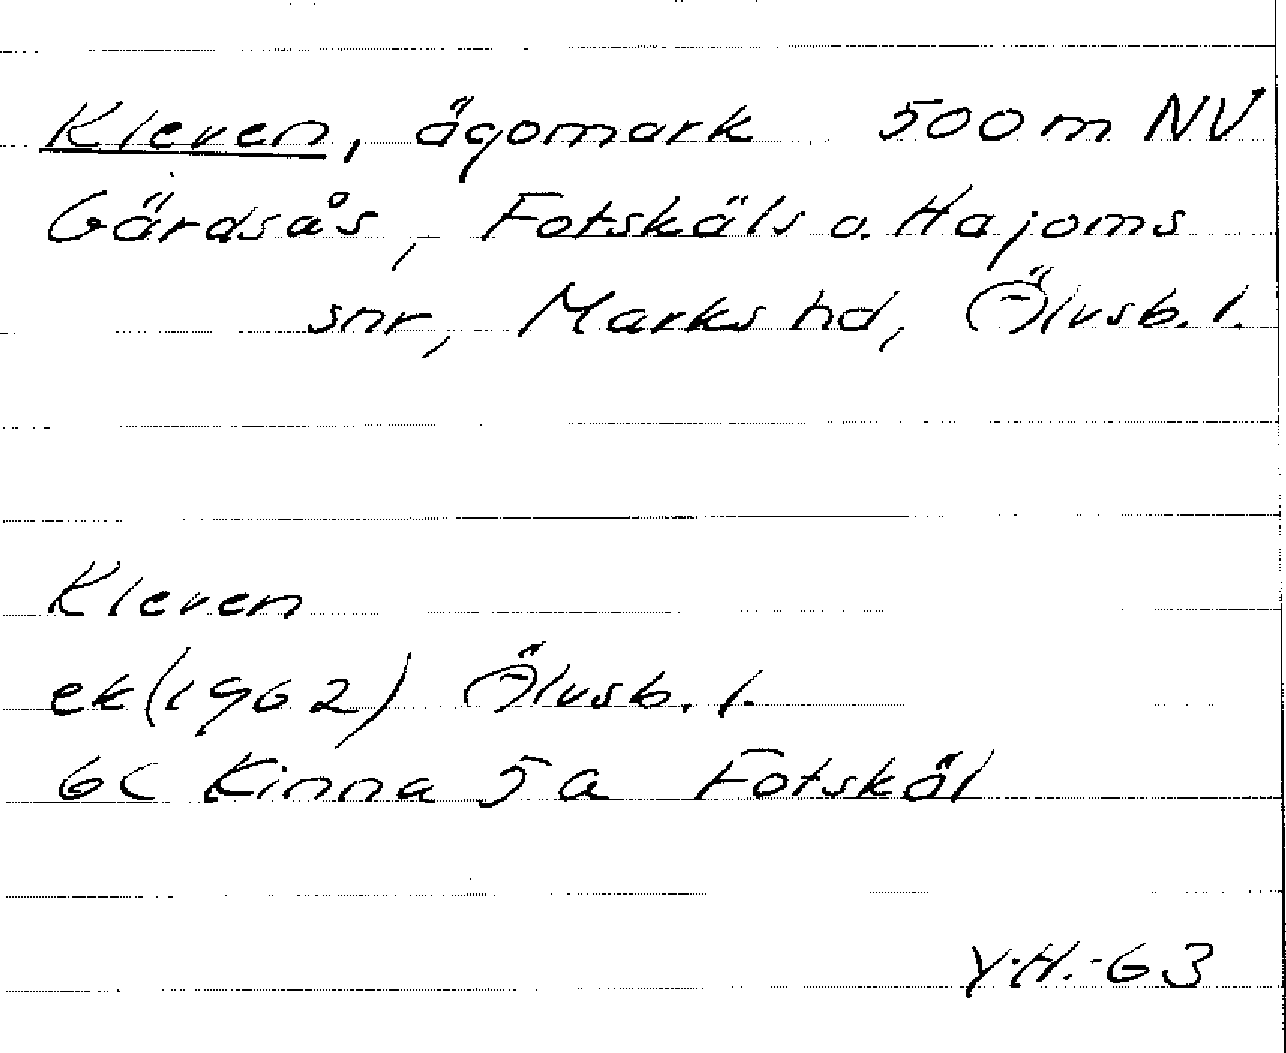 Kleven, ägomark 500 m NV
Gärdsås, Fotskäls o. Hajoms
snr, Marks hd, Älvsb. l.
Kleven
ek (1962) Älvsb. l.
6C Kinna 5a Fotskäl
Y.H.-63